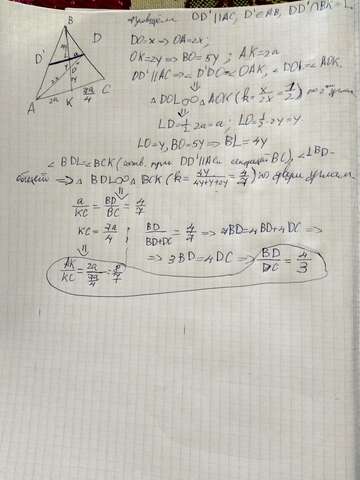 Проведём DD'∥AC, D'∈AB, DD'∩BK = L
B
D'
D
A
K
C
2a
7a/4
DO=x => OA=2x;
OK=2y => BO=5y; AK=2a
DD'∥AC => ∠D'DO=∠OAK, ∠DOL=∠AOK
=> △DOL∞△AOK (k=x/2x=1/2) по 2-м углам
LD=1/2·2a=a; LO=1/2·2y=y
LO=y, BO=5y => BL=4y
∠BDL=∠BCK (соотв. при DD'∥AC и секущей BC), ∠LBD-
общий => △BDL∞△BCK (k=4y/4y+y+2y=4/7) по двум углам
a/KC=BD/BC=4/7
KC=7a/4; BD/BD+DC=4/7 => 7BD=4BD+4DC =>
=> 3BD=4DC => BD/DC=4/3
AK/KC=2a/7a/4=8/7